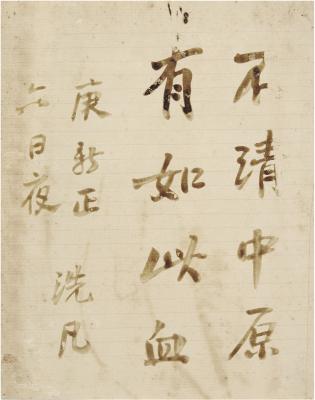 不清中原
有如此血
庚新正
六日夜
洗凡